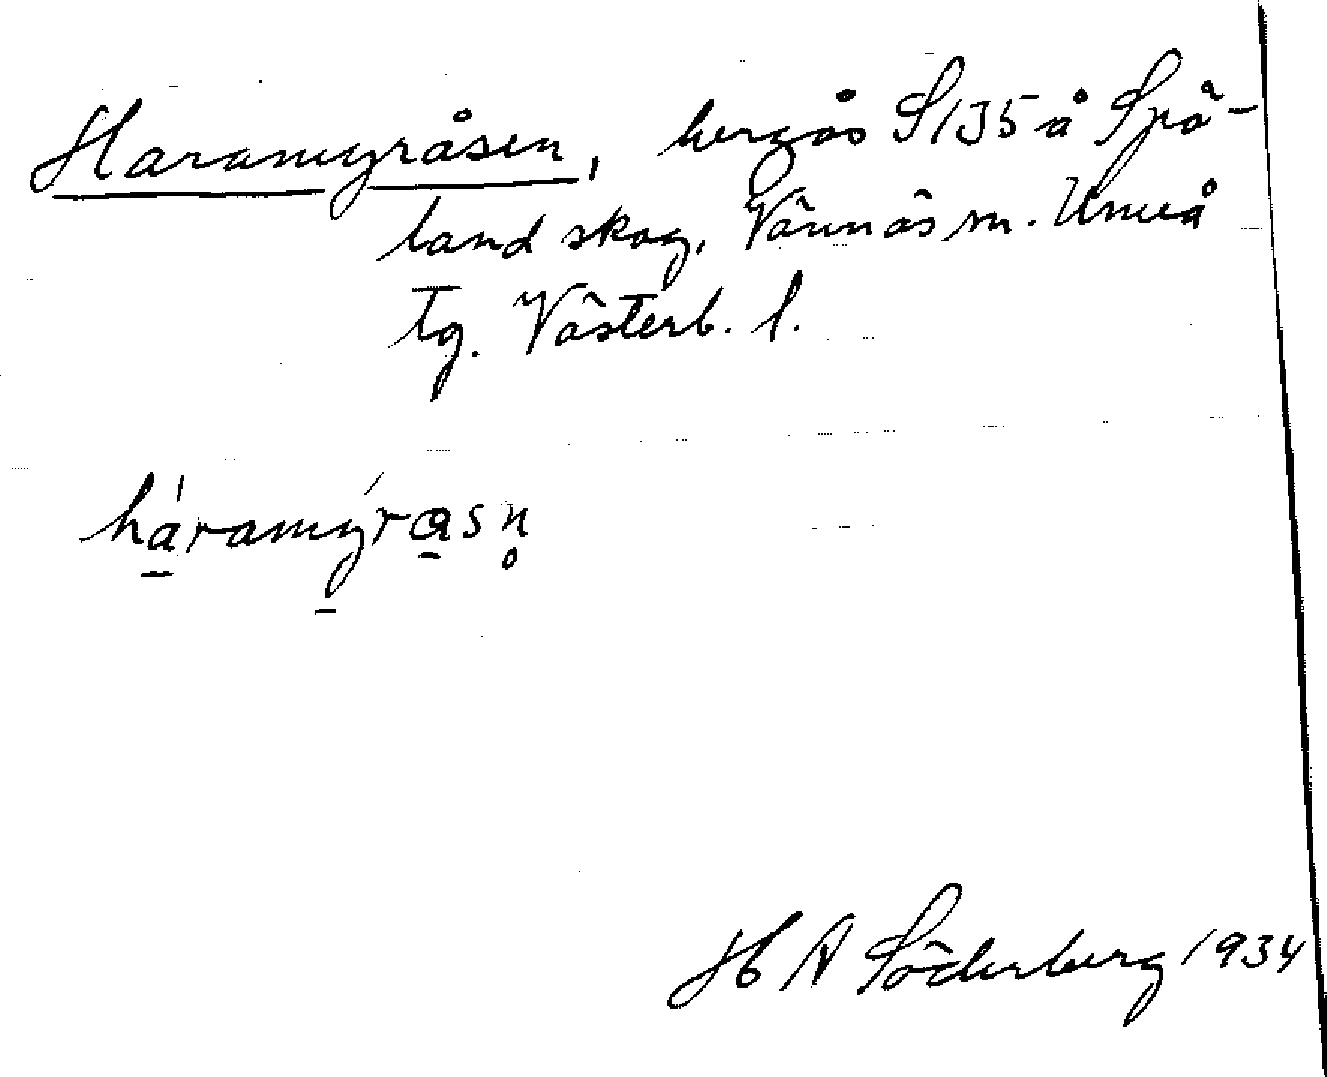 Haramyråsen, bergås S135 å Spö-
land skog, Vännäs sn. Umeå
tg. Västerb. l.
háramýrasn̥
H A Söderberg 1934